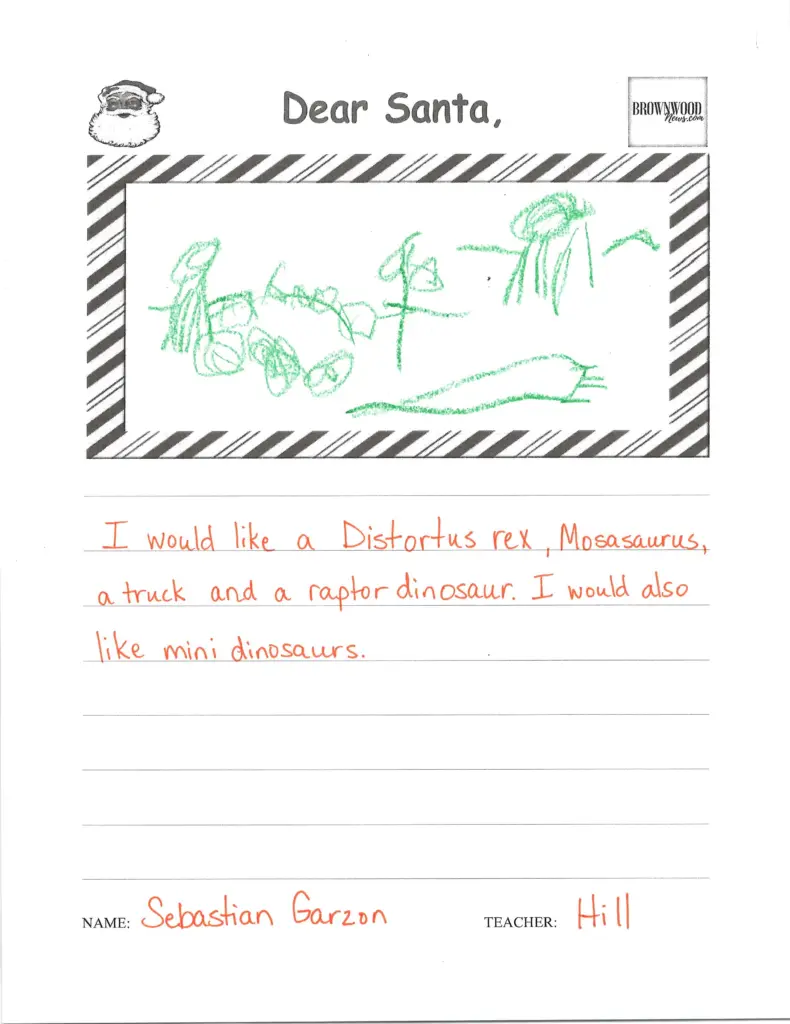 Dear Santa,
BROWNWOOD
News.com
I would like a Distortus rex, Mosasaurus,
a truck and a raptor dinosaur. I would also
like mini dinosaurs.
NAME: Sebastian Garzon TEACHER: Hill